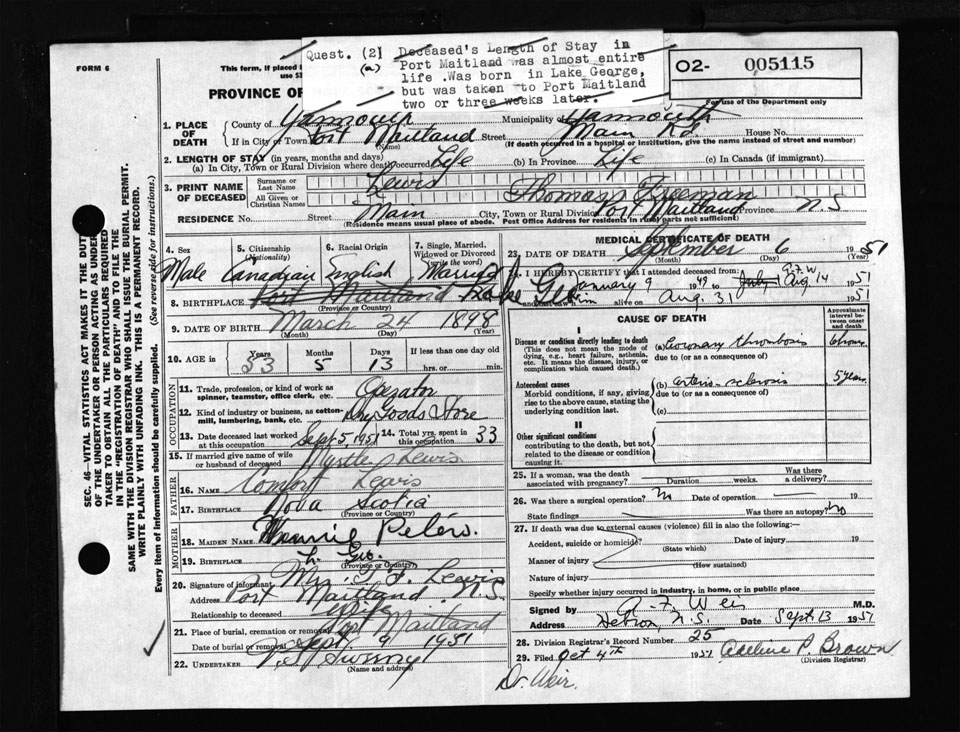 Quest. (2) Deceased's Length of Stay in
(a) Port Maitland was almost entire
life .Was born in Lake George,
but was taken to Port Maitland
two or three weeks later.
FORM 6
This form, if placed
use $3
PROVINCE OF
O2- 005115
For use of the Department only
1. PLACE OF DEATH
County of Yarmouth Municipality of Yarmouth
If in City or Town Port Maitland (Name) Street Main Rd. House No.
(If death occurred in a hospital or institution, give the name instead of street and number)
2. LENGTH OF STAY (in years, months and days)
(a) In City, Town or Rural Division where death occurred Life (b) In Province Life (c) In Canada (if immigrant)
3. PRINT NAME OF DECEASED
Surname or Last Name Lewis
All Given or Christian Names Thomas Freeman
RESIDENCE No. Street Main City, Town or Rural Division Port Maitland Province N.S
(Residence means usual place of abode. Post Office Address for residents in rural parts not sufficient)
4. Sex Male
5. Citizenship (Nationality) Canadian
6. Racial Origin English
7. Single, Married, Widowed or Divorced (write the word) Married
8. BIRTHPLACE Port Maitland Lake George
(Province or Country)
9. DATE OF BIRTH March 24 1898
(Month) (Day) (Year)
10. AGE in Years 53 Months 5 Days 13 If less than one day hrs. or min.
OCCUPATION
11. Trade, profession, or kind of work as spinner, teamster, office clerk, etc. Operator
12. Kind of industry or business, as cotton-mill, lumbering, bank, etc. Dry Goods Store
13. Date deceased last worked at this occupation Sept 5, 1951 14. Total yrs. spent in this occupation 33
15. If married give name of wife or husband of deceased Myrtle Lewis
FATHER
16. NAME Comfort Lewis
17. BIRTHPLACE Nova Scotia
(Province or Country)
MOTHER
18. MAIDEN NAME Peters.
19. BIRTHPLACE L. Geo.
(Province or Country)
20. Signature of informant Mrs. T. F. Lewis
Address Port Maitland N.S.
Relationship to deceased Wife
21. Place of burial, cremation or removal Port Maitland
Date of burial or removal Sept. 9 1951
22. UNDERTAKER V.S. Sweeny
(Name and address)
SEC. 46—VITAL STATISTICS ACT MAKES IT THE DUTY
OF THE UNDERTAKER OR PERSON ACTING AS UNDER-
TAKER TO OBTAIN ALL THE PARTICULARS REQUIRED
IN THE "REGISTRATION OF DEATH" AND TO FILE THE
SAME WITH THE DIVISION REGISTRAR WHO SHALL ISSUE THE BURIAL PERMIT.
WRITE PLAINLY WITH UNFADING INK. THIS IS A PERMANENT RECORD.
Every item of information should be carefully supplied. (See reverse side for instructions.)
MEDICAL CERTIFICATE OF DEATH
23. DATE OF DEATH September 6 1951
(Month) (Day) (Year)
I HEREBY CERTIFY that I attended deceased from:
January 9 1949 to July 1 Aug 14 1951
A.F.W
him alive on Aug. 31 1951
CAUSE OF DEATH
Approximate interval between onset and death
I
Disease or condition directly leading to death
(This does not mean the mode of dying, e.g., heart failure, asthenia, etc. It means the disease, injury, or complication which caused death.)
(a) Coronary thrombosis 6 hours
due to (or as a consequence of)
Antecedent causes
Morbid conditions, if any, giving rise to the above cause, stating the underlying condition last.
(b) arterio-sclerosis 5 years
due to (or as a consequence of)
(c)
II
Other significant conditions
contributing to the death, but not related to the disease or condition causing it.
25. If a woman, was the death associated with pregnancy? Duration weeks. Was there a delivery?
26. Was there a surgical operation? No Date of operation 19
State findings Was there an autopsy? No
27. If death was due to external causes (violence) fill in also the following:—
Accident, suicide or homicide? (State which) Date of injury 19
Manner of injury (How sustained)
Nature of injury
Specify whether injury occurred in industry, in home, or in public place
Signed by A. F. Weir M.D.
Address Hebron N.S. Date Sept 13 1951
28. Division Registrar's Record Number 25
29. Filed Oct 4th 1951 Adeline P. Brown
(Division Registrar)
Dr. Weir.